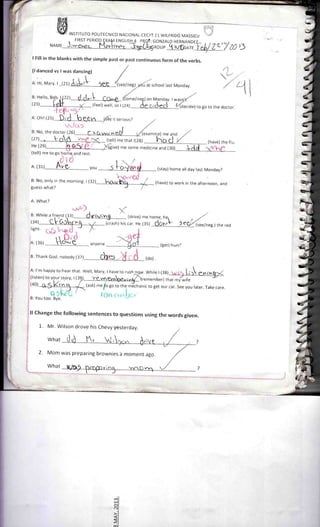 INSTITUTO POLITECNICO NACIONAL CECYT 11 WILFRIDO MASSIEU
FIRST PERIOD EXAM ENGLISH PROF. GONZALO HERNANDEZ
NAME Jimenez Martinez GROUP DATE Feb/22/2013
12
41
I Fill in the blanks with the simple past or past continuous form of the verbs.
(I danced vs I was dancing)
A: Hi, Mary. I (21) didn't see (see/neg) you at school last Monday.
B: Hello, Bob. I (22) didn't come (come/neg) on Monday. I wasn't
(23) felt (feel) well, so I (24) decided (decide) to go to the doctor.
feeling
A: Oh! (25) Did been it serious?
was
B: No, the doctor (26) examined (examine) me and
(27) told me (tell) me that I (28) had (have) the flu.
He (29) gave (give) me some medicine and (30) told me
(tell) me to go home and rest.
did
A: (31) Are you stayed (stay) home all day last Monday?
B: No, only in the morning. I (32) having (have) to work in the afternoon, and
had
guess what?
A: What?
was
B: While a friend (33) driving (drive) me home, he
(34) crashing (crash) his car. He (35) didn't see (see/neg) the red
light. crashed
Did get
A: (36) Have anyone got (get) hurt?
B: Thank God, nobody (37) does did (do).
A: I'm happy to hear that. Well, Mary, I have to rush now. While I (38) was listening
(listen) to your story, I (39) remembering (remember) that my wife
(40) asking (ask) me to go to the mechanic to get our car. See you later. Take care.
asked remember
B: You too. Bye.
II Change the following sentences to questions using the words given.
1. Mr. Wilson drove his Chevy yesterday.
What did Mr. Wilson drive ?
2. Mom was preparing brownies a moment ago.
What was preparing mom ?
MAY, 2013